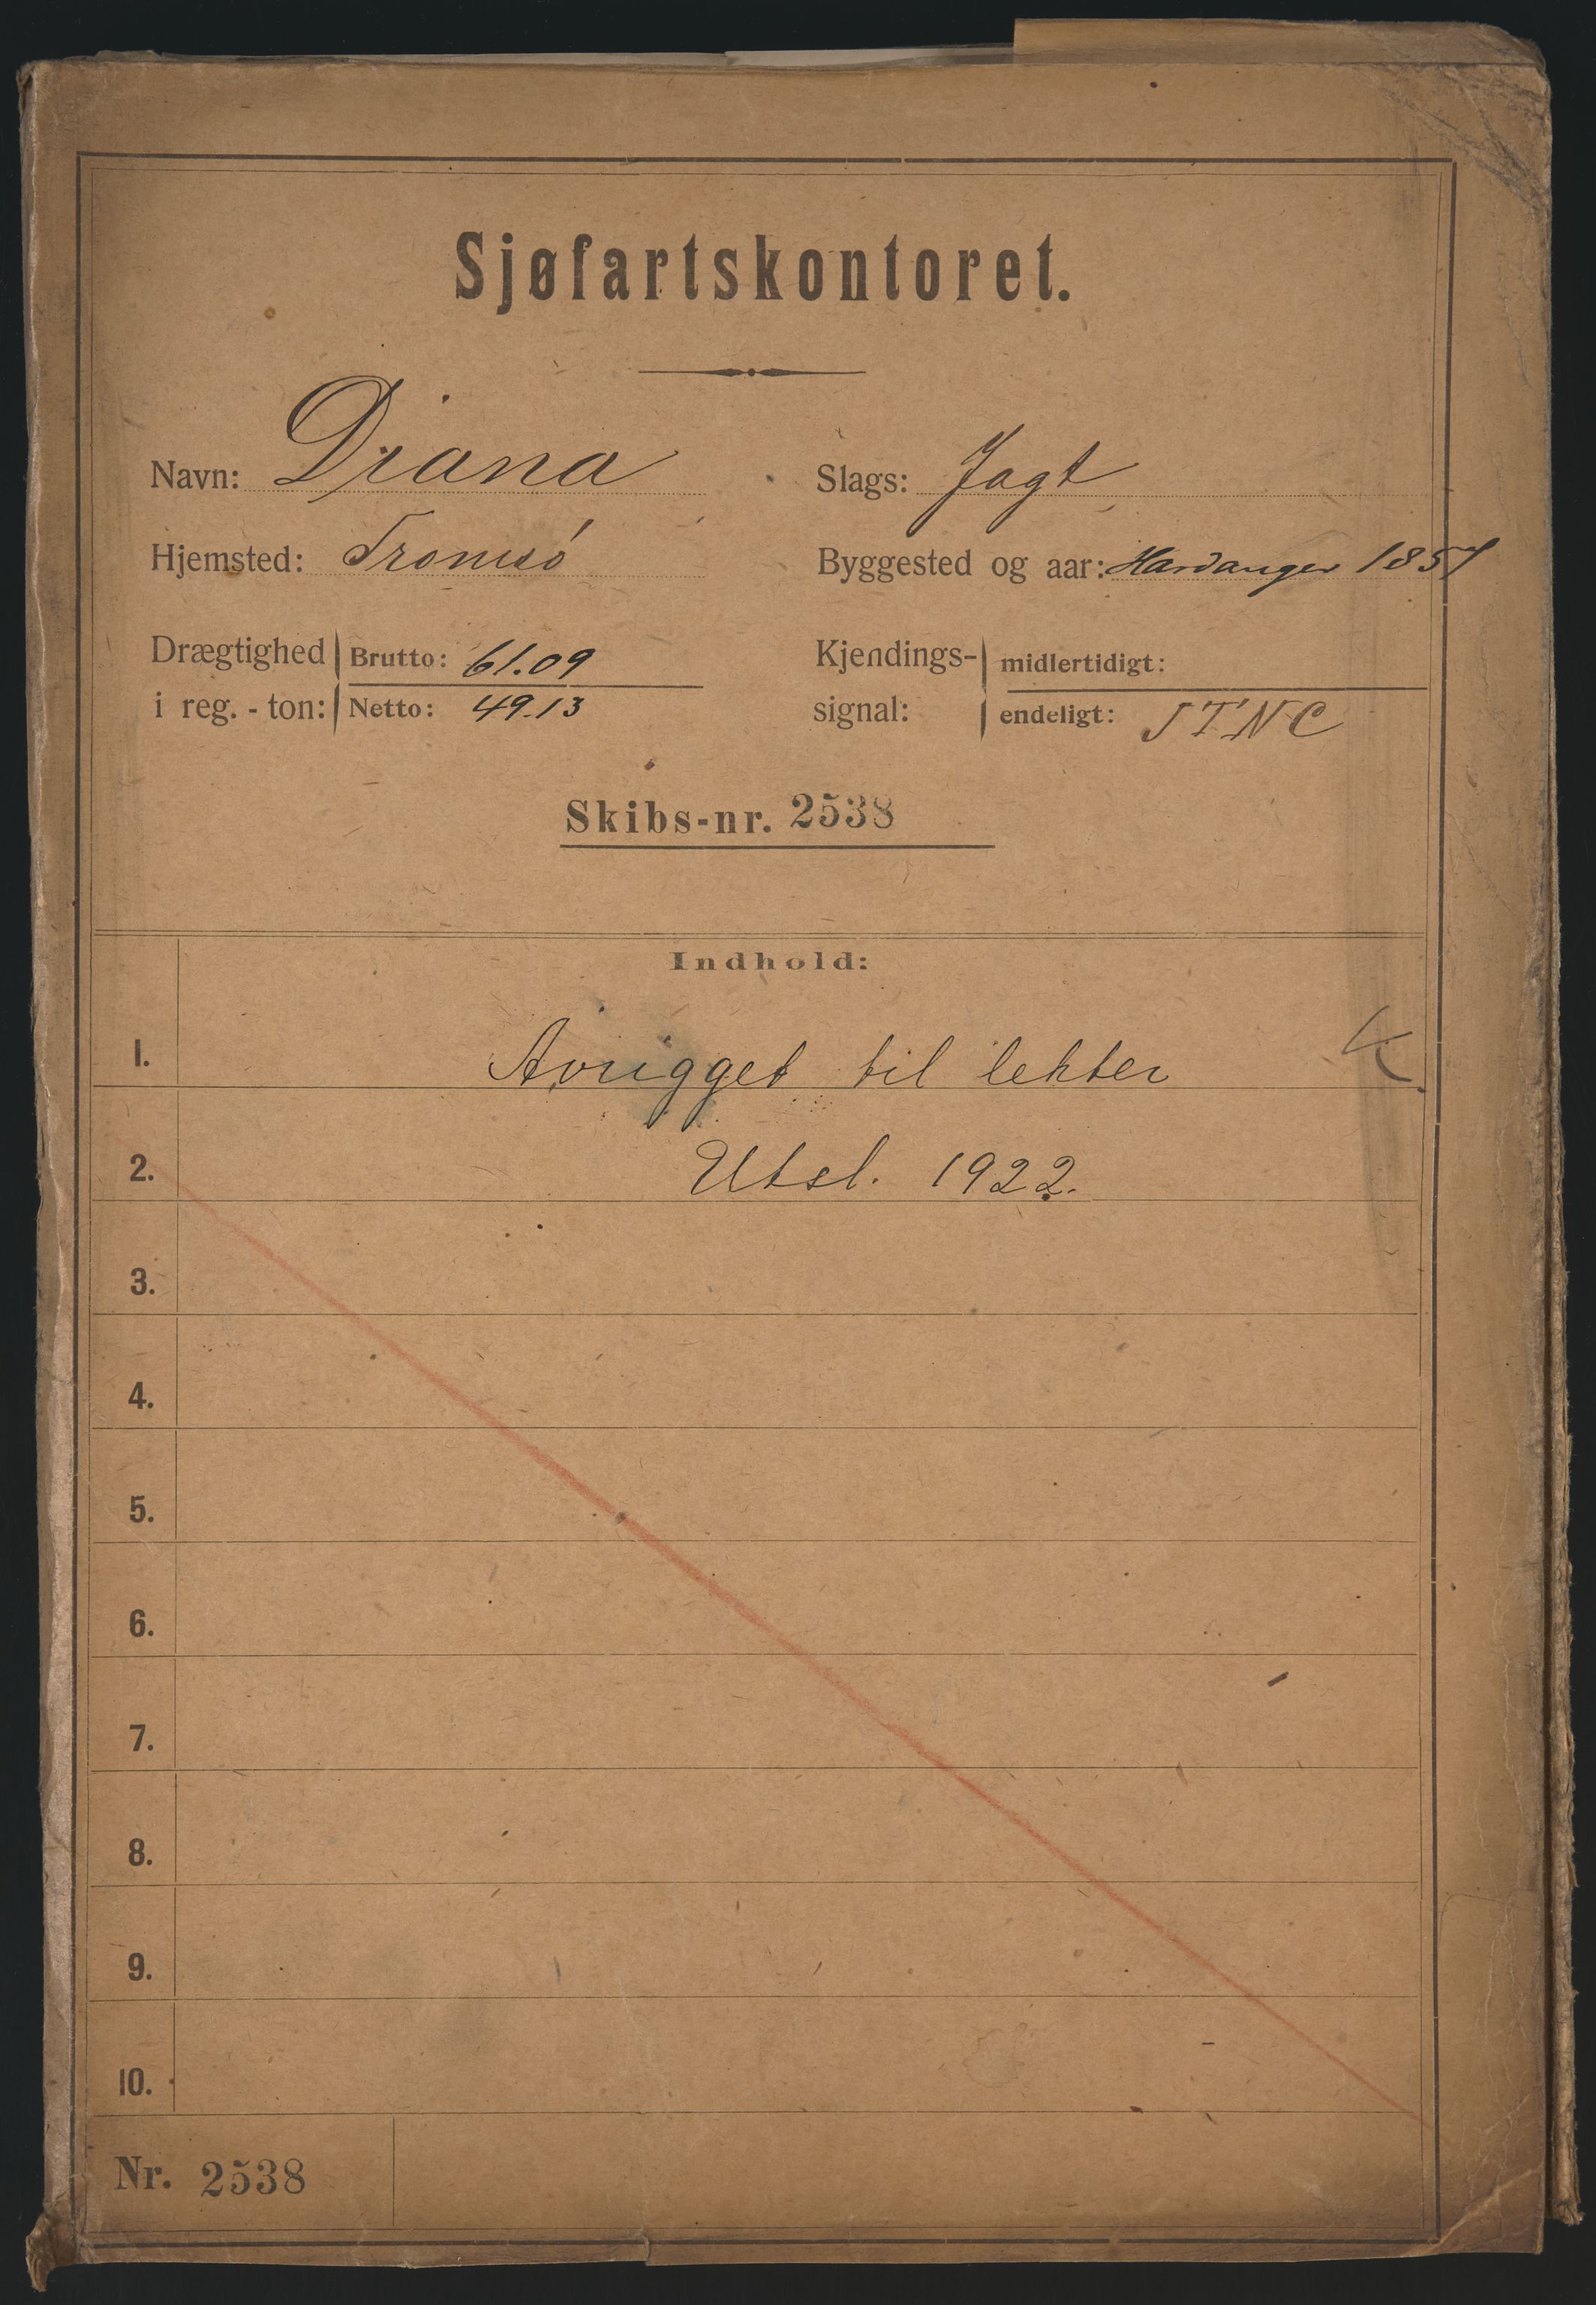 Sjøfartskontoret.
Navn: Diana
Slags: Jagt
Hjemsted: Tromsø
Byggested og aar: Hardanger 1857
Drægtighed i reg.-ton: Brutto: 61.09
Netto: 49.13
Kjendings-signal: midlertidigt:
endeligt: JTNC
Skibs-nr. 2538
Indhold:
1. Avrigget til lekter K
2. Utsl. 1922.
3.
4.
5.
6.
7.
8.
9.
10.
Nr. 2538